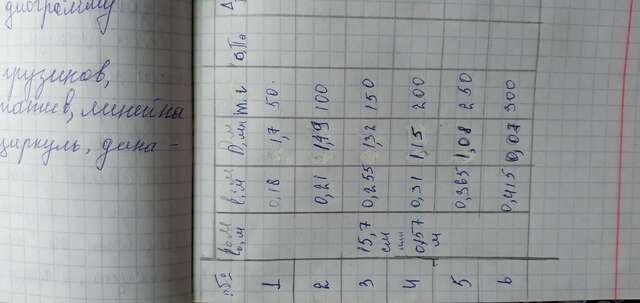 диаграмму
грузиков,
линейка
циркуль, дина-
№
l₀, м
l, м
D, мм
m, г
σ, Па
1 0,18 1,7 50
2 0,21 100
3 0,255 1,32 150
4 0,31 1,15 200
5 0,365 1,08 250
6 0,415 300
15,7
см
или
0,157
м